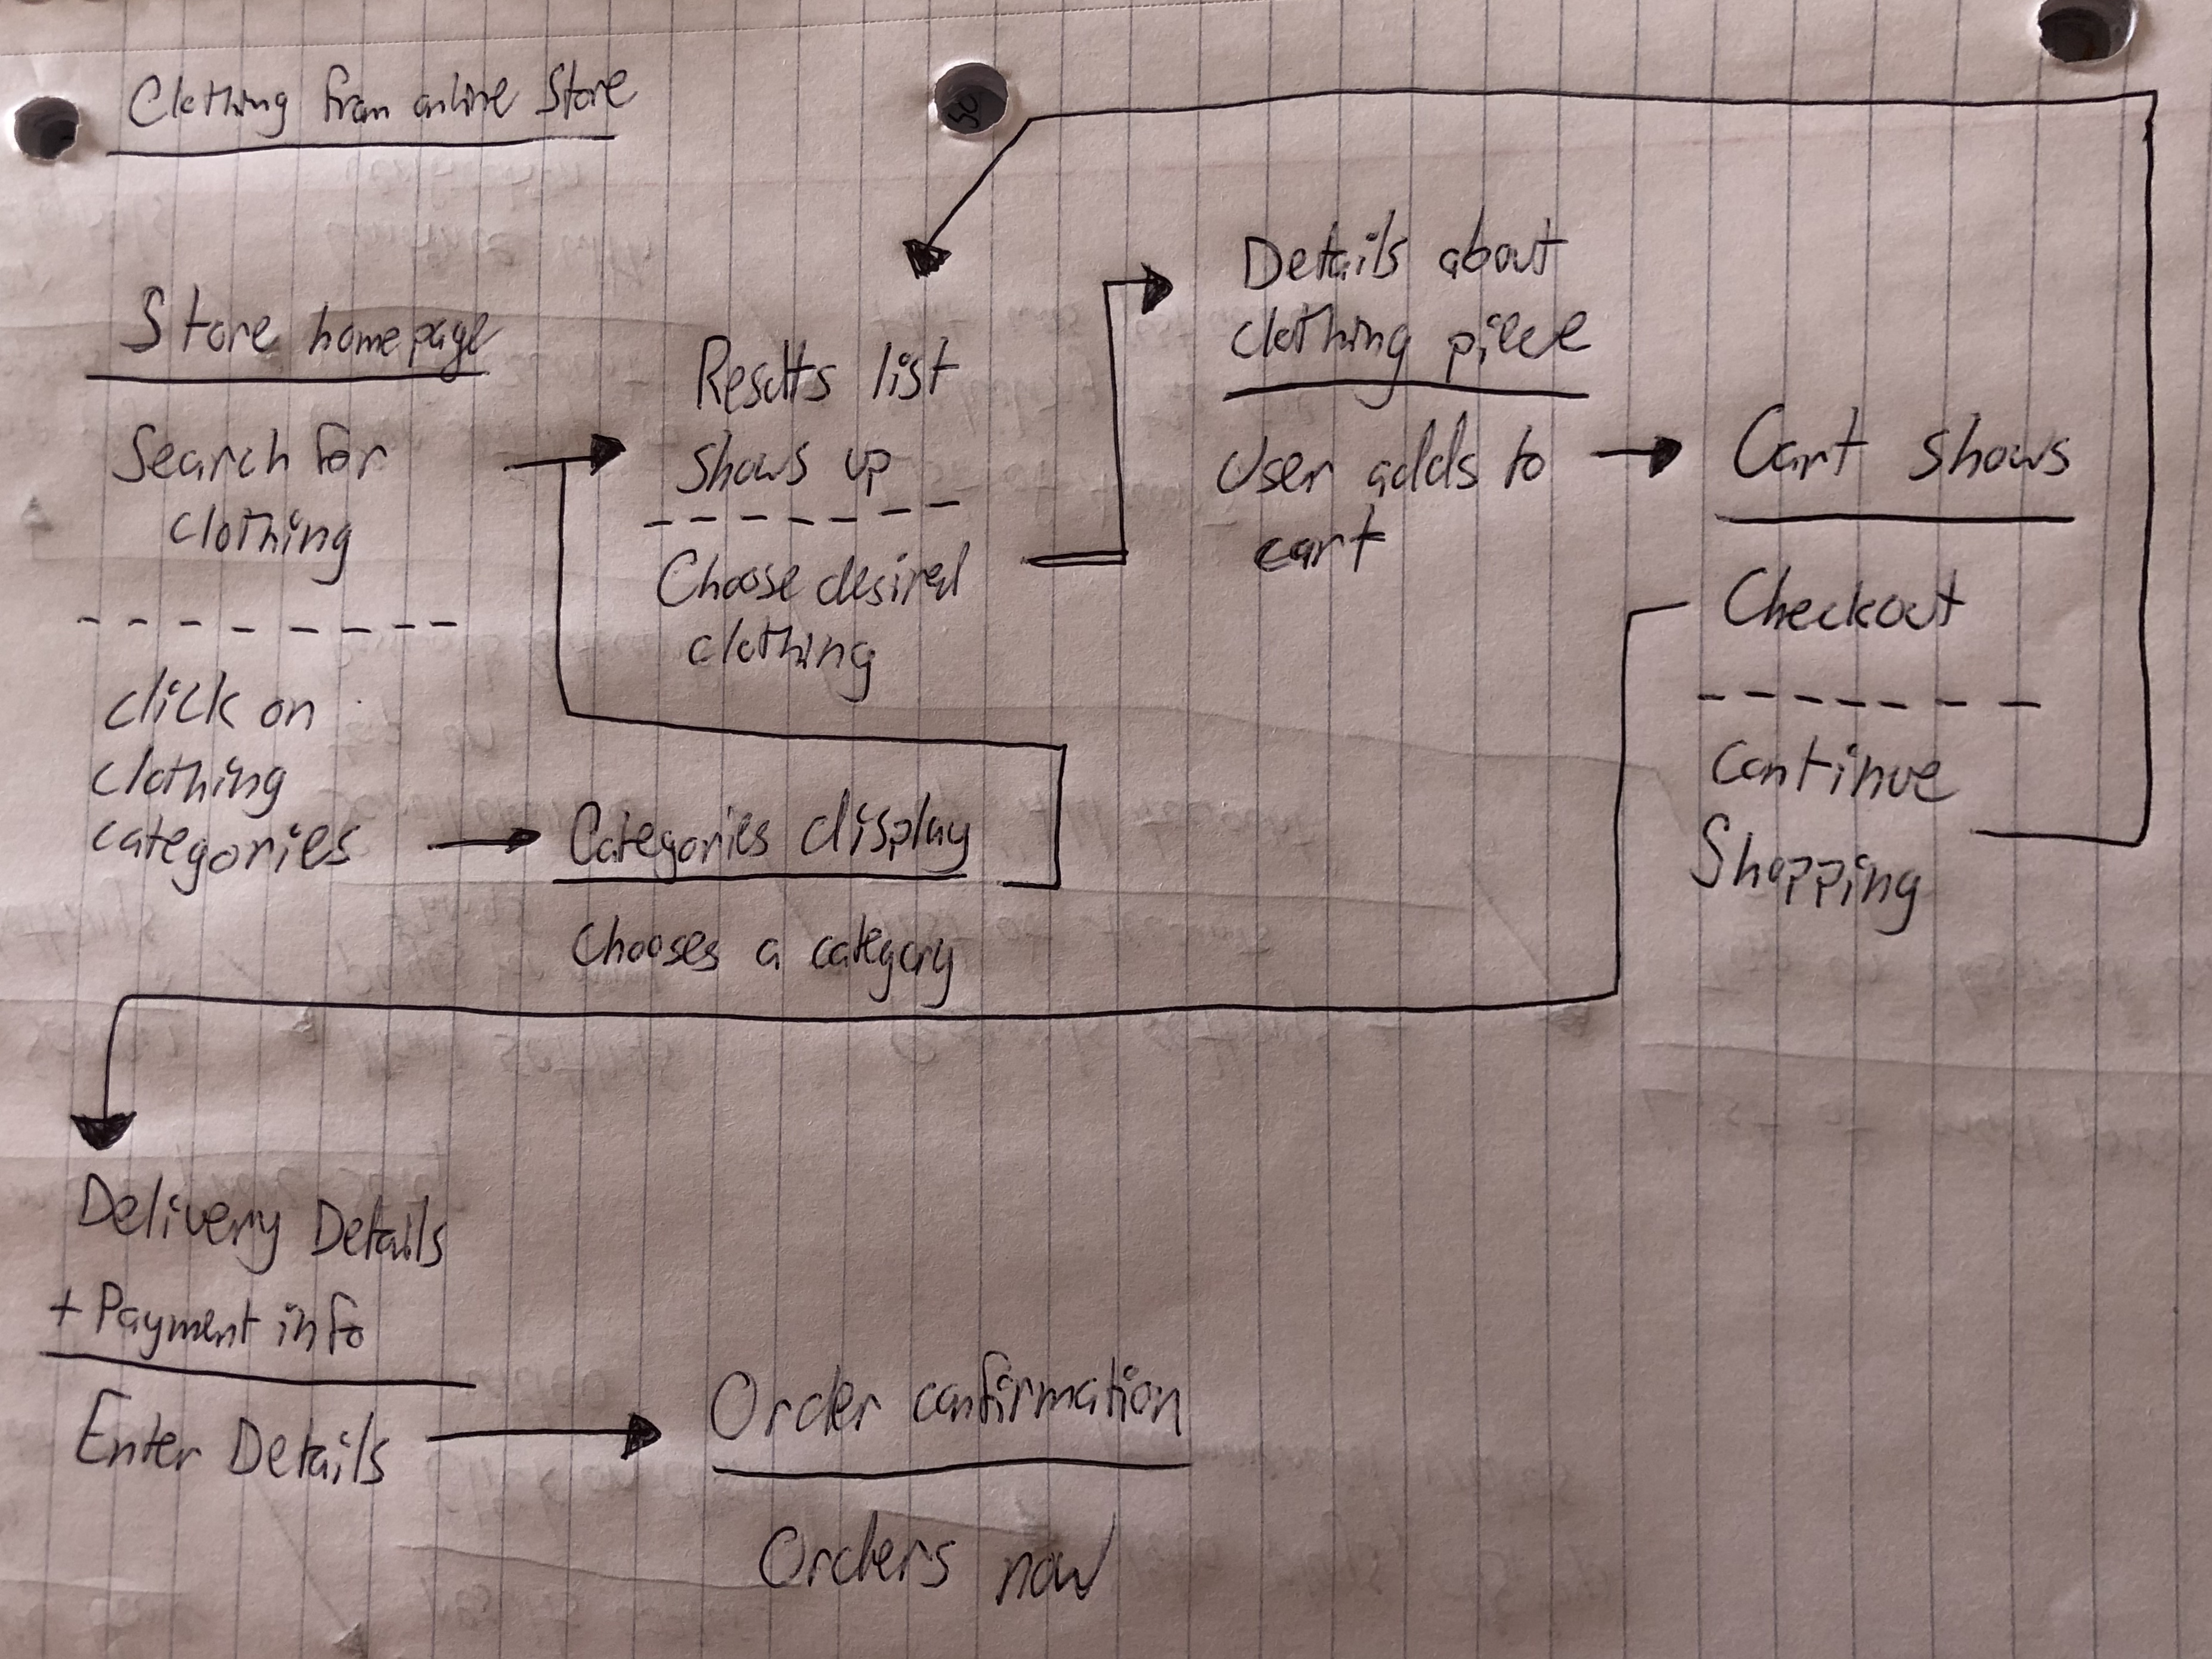 Clothing from online Store
Store homepage
Search for
clothing
click on
clothing
categories
Results list
shows up
Choose desired
clothing
Categories display
Chooses a category
Details about
clothing piece
User adds to
cart
Cart shows
Checkout
Continue
Shopping
Delivery Details
+ Payment info
Enter Details
Order confirmation
Orders now